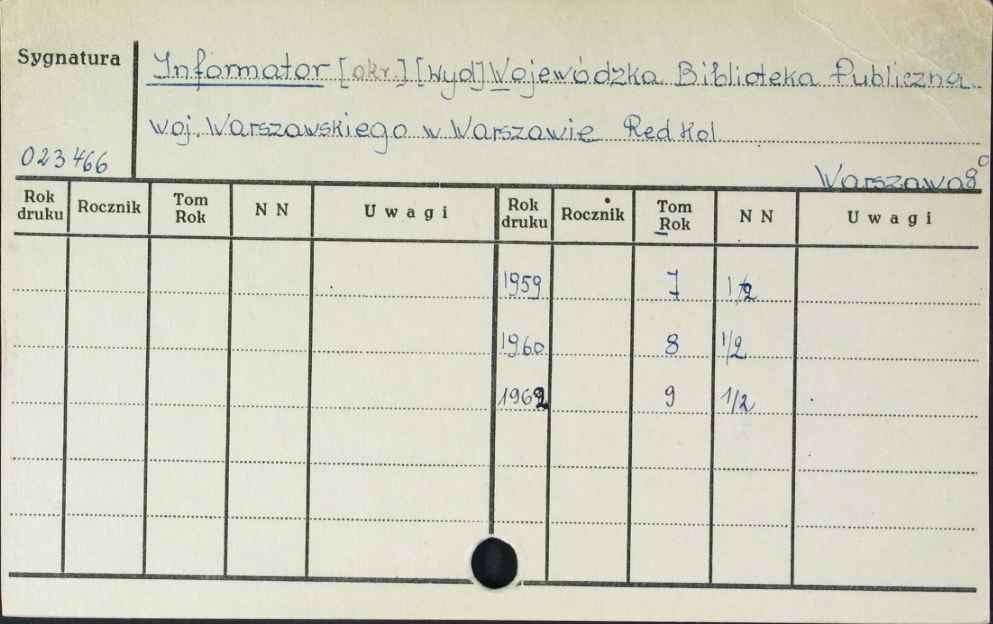 Sygnatura
Informator [okr.] [Wyd] Wojewódzka Biblioteka Publiczna
woj. Warszawskiego w Warszawie Red Kol
023466
Warszawa 8°
Rok druku Rocznik Tom Rok N N Uwagi Rok druku Rocznik Tom Rok N N Uwagi
1959 7 1/2
1960 8 1/2
1962 9 1/2